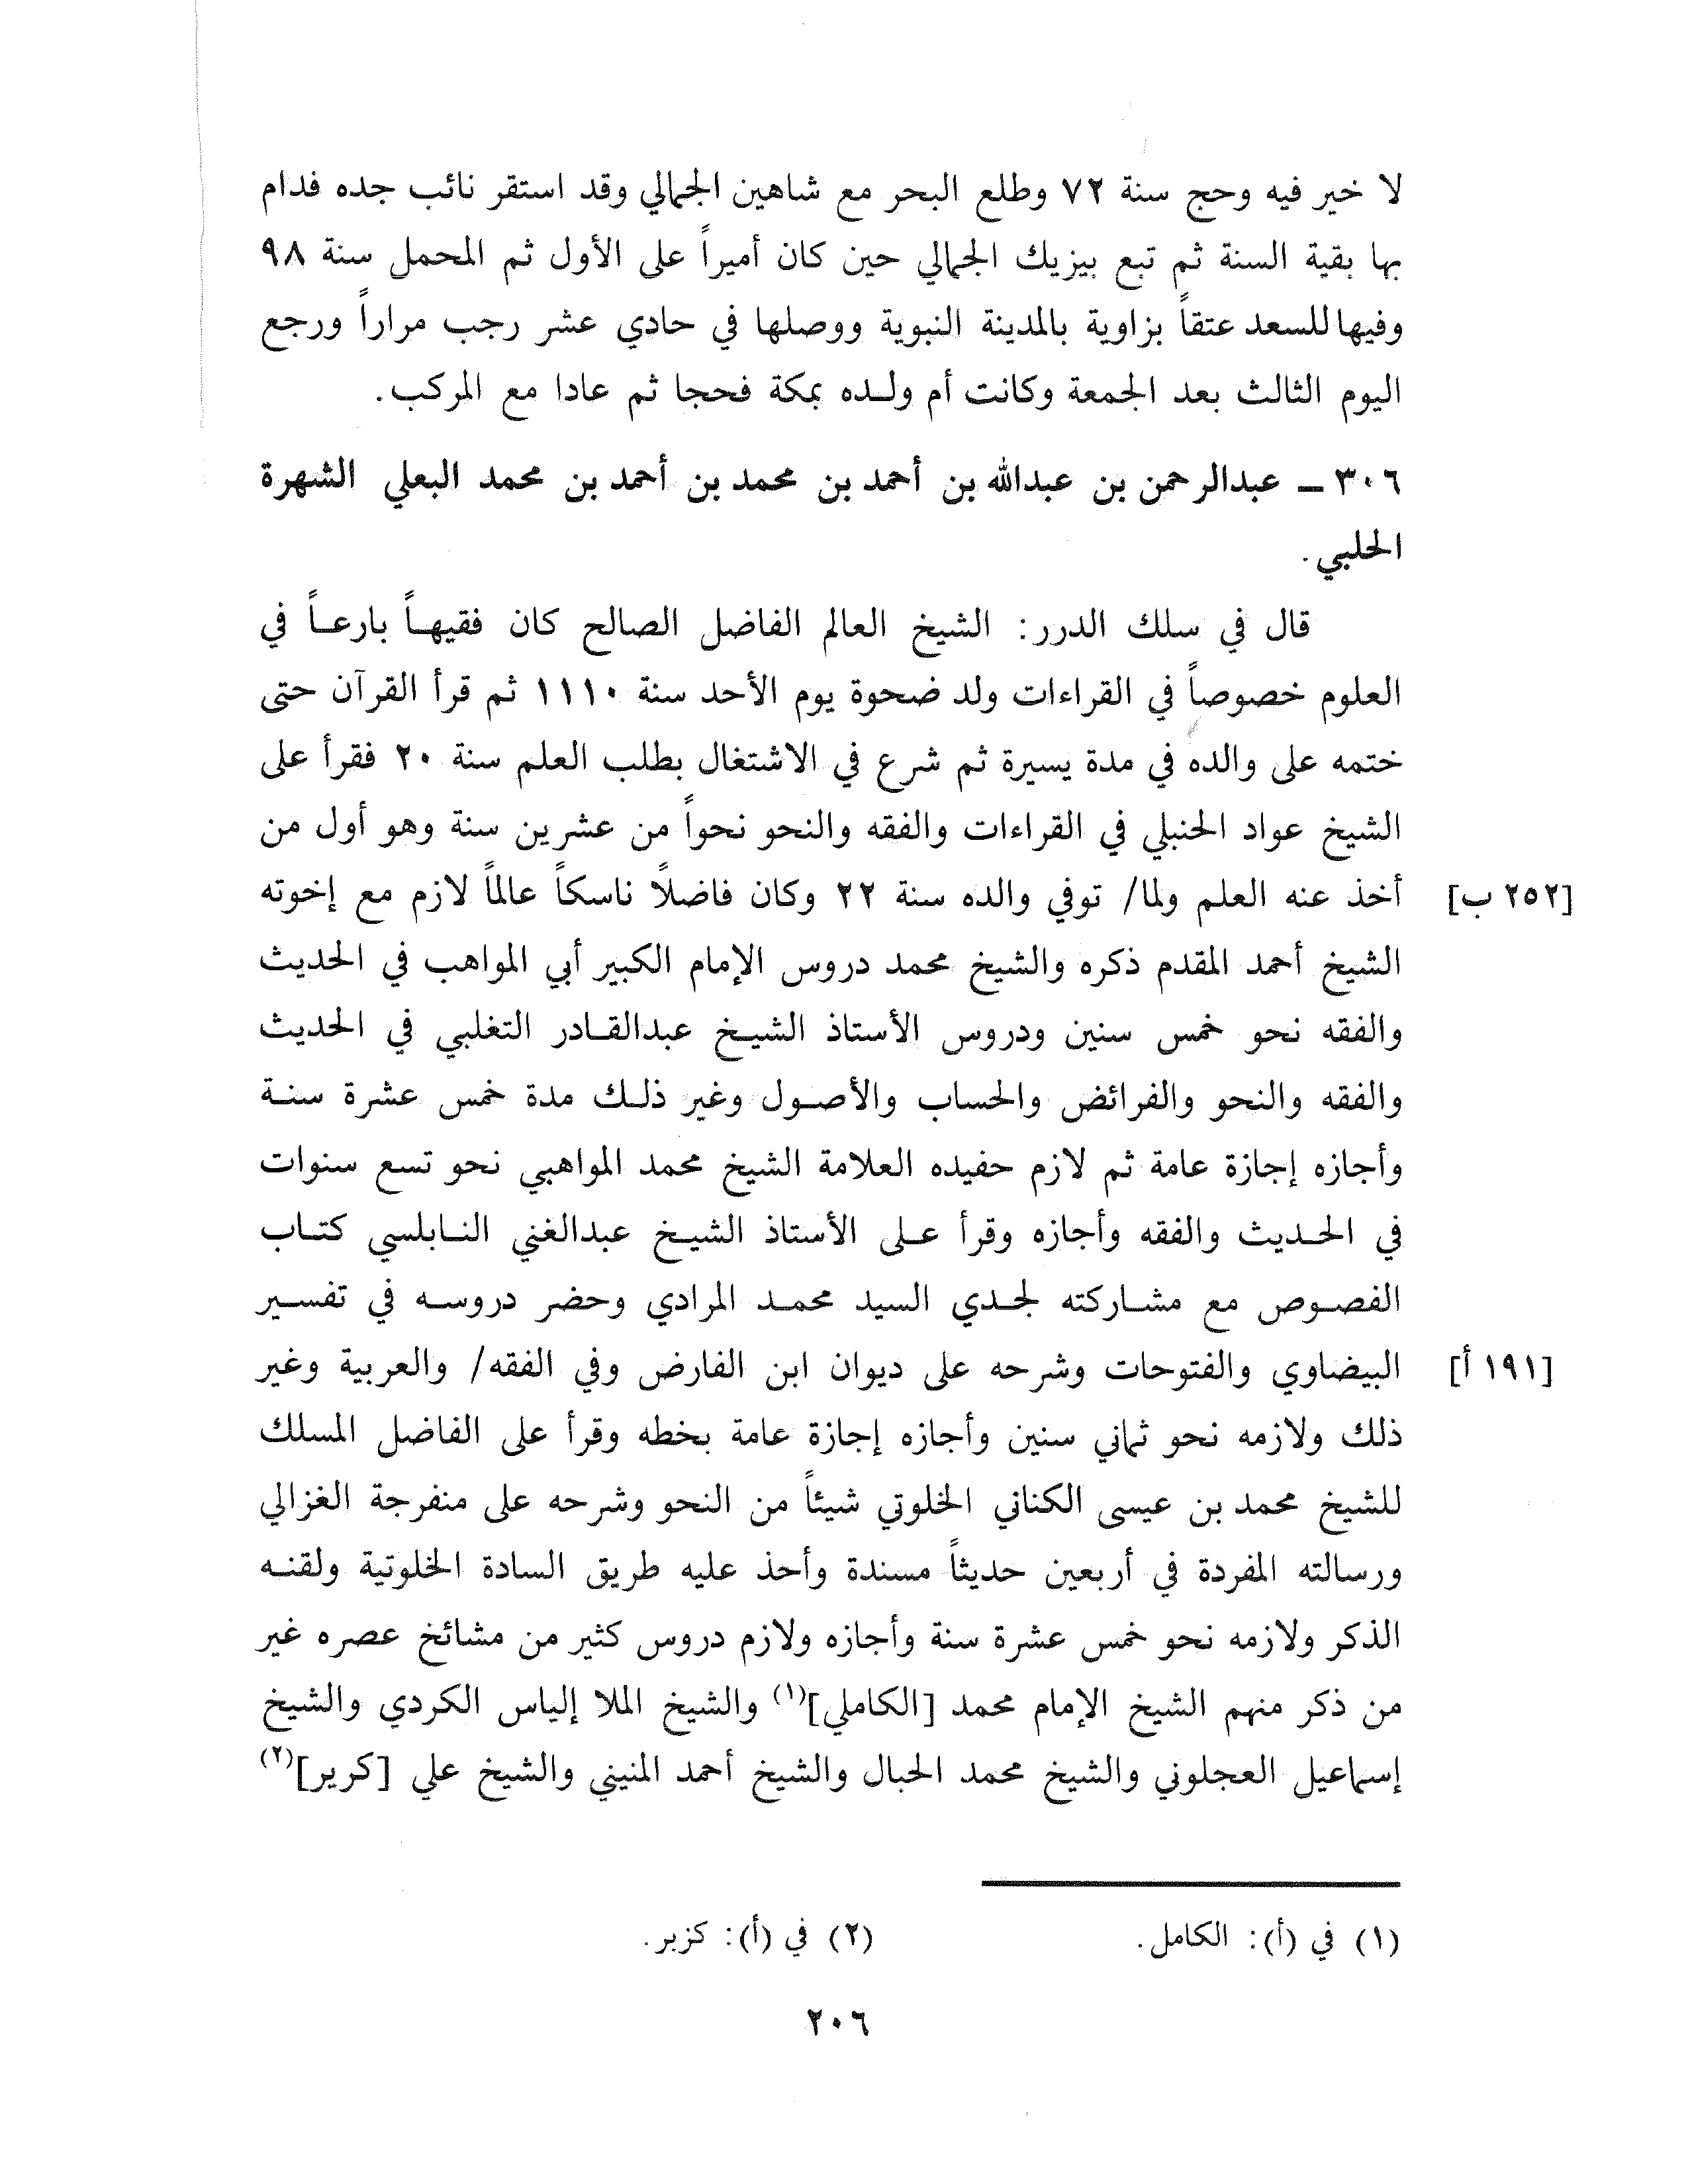 لا خير فيه وحج سنة ٧٢ وطلع البحر مع شاهين الجمالي وقد استقر نائب جده فدام
بها بقية السنة ثم تبع بيزيك الجمالي حين كان أميراً على الأول ثم المحمل سنة ٩٨
وفيها للسعد عتقاً بزاوية بالمدينة النبوية ووصلها في حادي عشر رجب مراراً ورجع
اليوم الثالث بعد الجمعة وكانت أم ولده بمكة فحجا ثم عادا مع المركب.
٣٠٦ ــ عبدالرحمن بن عبدالله بن أحمد بن محمد بن أحمد بن محمد البعلي الشهرة
الحلبي.
قال في سلك الدرر: الشيخ العالم الفاضل الصالح كان فقيهاً بارعاً في
العلوم خصوصاً في القراءات ولد ضحوة يوم الأحد سنة ١١١٠ ثم قرأ القرآن حتى
ختمه على والده في مدة يسيرة ثم شرع في الاشتغال بطلب العلم سنة ٢٠ فقرأ على
الشيخ عواد الحنبلي في القراءات والفقه والنحو نحواً من عشرين سنة وهو أول من
أخذ عنه العلم ولما/ توفي والده سنة ٢٢ وكان فاضلاً ناسكاً عالماً لازم مع إخوته
[٢٥٢ ب]
الشيخ أحمد المقدم ذكره والشيخ محمد دروس الإمام الكبير أبي المواهب في الحديث
والفقه نحو خمس سنين ودروس الأستاذ الشيخ عبدالقادر التغلبي في الحديث
والفقه والنحو والفرائض والحساب والأصول وغير ذلك مدة خمس عشرة سنة
وأجازه إجازة عامة ثم لازم حفيده العلامة الشيخ محمد المواهبي نحو تسع سنوات
في الحديث والفقه وأجازه وقرأ على الأستاذ الشيخ عبدالغني النابلسي كتاب
الفصوص مع مشاركته لجدي السيد محمد المرادي وحضر دروسه في تفسير
البيضاوي والفتوحات وشرحه على ديوان ابن الفارض وفي الفقه/ والعربية وغير
[١٩١ أ]
ذلك ولازمه نحو ثماني سنين وأجازه إجازة عامة بخطه وقرأ على الفاضل المسلك
للشيخ محمد بن عيسى الكناني الخلوتي شيئاً من النحو وشرحه على منفرجة الغزالي
ورسالته المفردة في أربعين حديثاً مسندة وأحذ عليه طريق السادة الخلوتية ولقنه
الذكر ولازمه نحو خمس عشرة سنة وأجازه ولازم دروس كثير من مشائخ عصره غير
من ذكر منهم الشيخ الإمام محمد [الكاملي](١) والشيخ الملا إلياس الكردي والشيخ
إسماعيل العجلوني والشيخ محمد الحبال والشيخ أحمد المنيني والشيخ علي [كرير](٢)
(١) في (أ): الكامل.
(٢) في (أ): كزبر.
٢٠٦